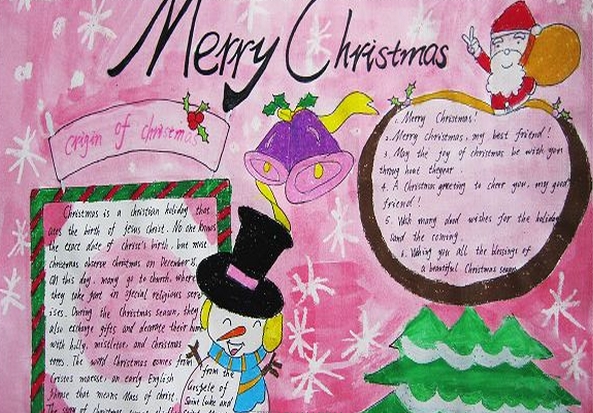 Merry Christmas
Origin of Christmas
Christmas is a christian holiday that
the birth of Jesus christ. No one knows
the exact date of christ's birth, but most
christmas observe Christmas on December 25.
On this day. many go to church, where
they take part in special religious serv
ises. During the Christmas season, they
also exchange gifts and decorate their home
with holly, mistletoe, and Christmas
trees. The word Christmas comes from
Cristes maesse, an early English
phrase that means Mass of christ.
The story of Christmas
from the
Gospels of
Saint Luke and
1. Merry Christmas!
2. Merry christmas, my best friend!
3. May the joy of christmas be with you
throug hout theyear.
4. A Christmas greeting to cheer you, my good
friend!
5. With many good wishes for the holiday
and the coming.
6. Wishing you all the blessings of
a beautiful Christmas season.